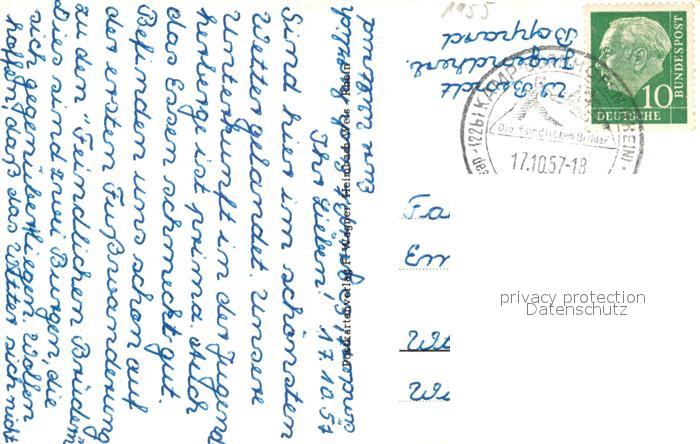 1955
W. Brodt
Jugendherb.
Boppard
DEUTSCHE BUNDESPOST
10
KAMP
RHEIN
(22b)
Die feindlichen Brüder
17.10.57-18
17.10.57
Ihr Lieben!
Sind hier im schönsten
Wetter gelandet. Unsere
Unterkunft in der Jugend
herberge ist prima. Auch
das Essen schmeckt gut.
Befinden uns schon auf
der ersten Fußwanderung
zu den "Feindlichen Brüdern"
Dies sind zwei Burgen, die
sich gegenüberliegen. Wollen
hoffen, daß das Wetter sich nicht
Postkartenverlag F. Wagner, Heimbach-Weis / Rhein
Fa
privacy protection
Datenschutz